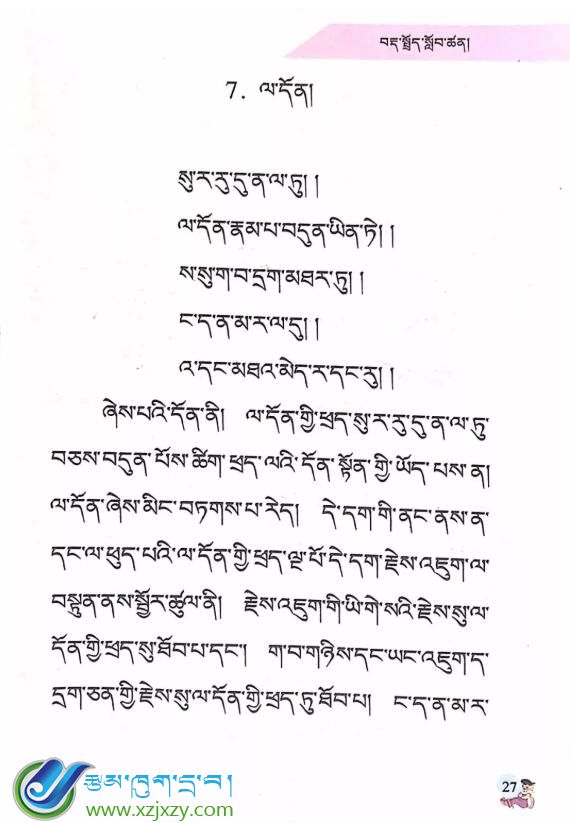 བརྡ་སྤྲོད་སློབ་ཚན།
7. ལ་དོན།
སུ་ར་རུ་དུ་ན་ལ་ཏུ། །
ལ་དོན་རྣམ་པ་བདུན་ཡིན་ཏེ། །
ས་སུ་ག་བ་དྲག་མཐར་ཏུ། །
ང་ད་ན་མ་ར་ལ་དུ། །
འ་དང་མཐའ་མེད་ར་དང་རུ། །
ཞེས་པའི་དོན་ནི། ལ་དོན་གྱི་ཕྲད་སུ་ར་རུ་དུ་ན་ལ་ཏུ་
བཅས་བདུན་པོས་ཚིག་ཕྲད་ལའི་དོན་སྟོན་གྱི་ཡོད་པས་ན།
ལ་དོན་ཞེས་མིང་བཏགས་པ་རེད། དེ་དག་གི་ནང་ནས་ན་
དང་ལ་ཕུད་པའི་ལ་དོན་གྱི་ཕྲད་ལྔ་པོ་དེ་དག་རྗེས་འཇུག་ལ་
བསྟུན་ནས་སྦྱོར་ཚུལ་ནི། རྗེས་འཇུག་གི་ཡི་གེ་སའི་རྗེས་སུ་ལ་
དོན་གྱི་ཕྲད་སུ་ཐོབ་པ་དང་། ག་བ་གཉིས་དང་ཡང་འཇུག་ད་
དྲག་ཅན་གྱི་རྗེས་སུ་ལ་དོན་གྱི་ཕྲད་ཏུ་ཐོབ་པ། ང་ད་ན་མ་ར་
27
རྩམ་ཁུག་དྲ་བ།
www.xzjxzy.com